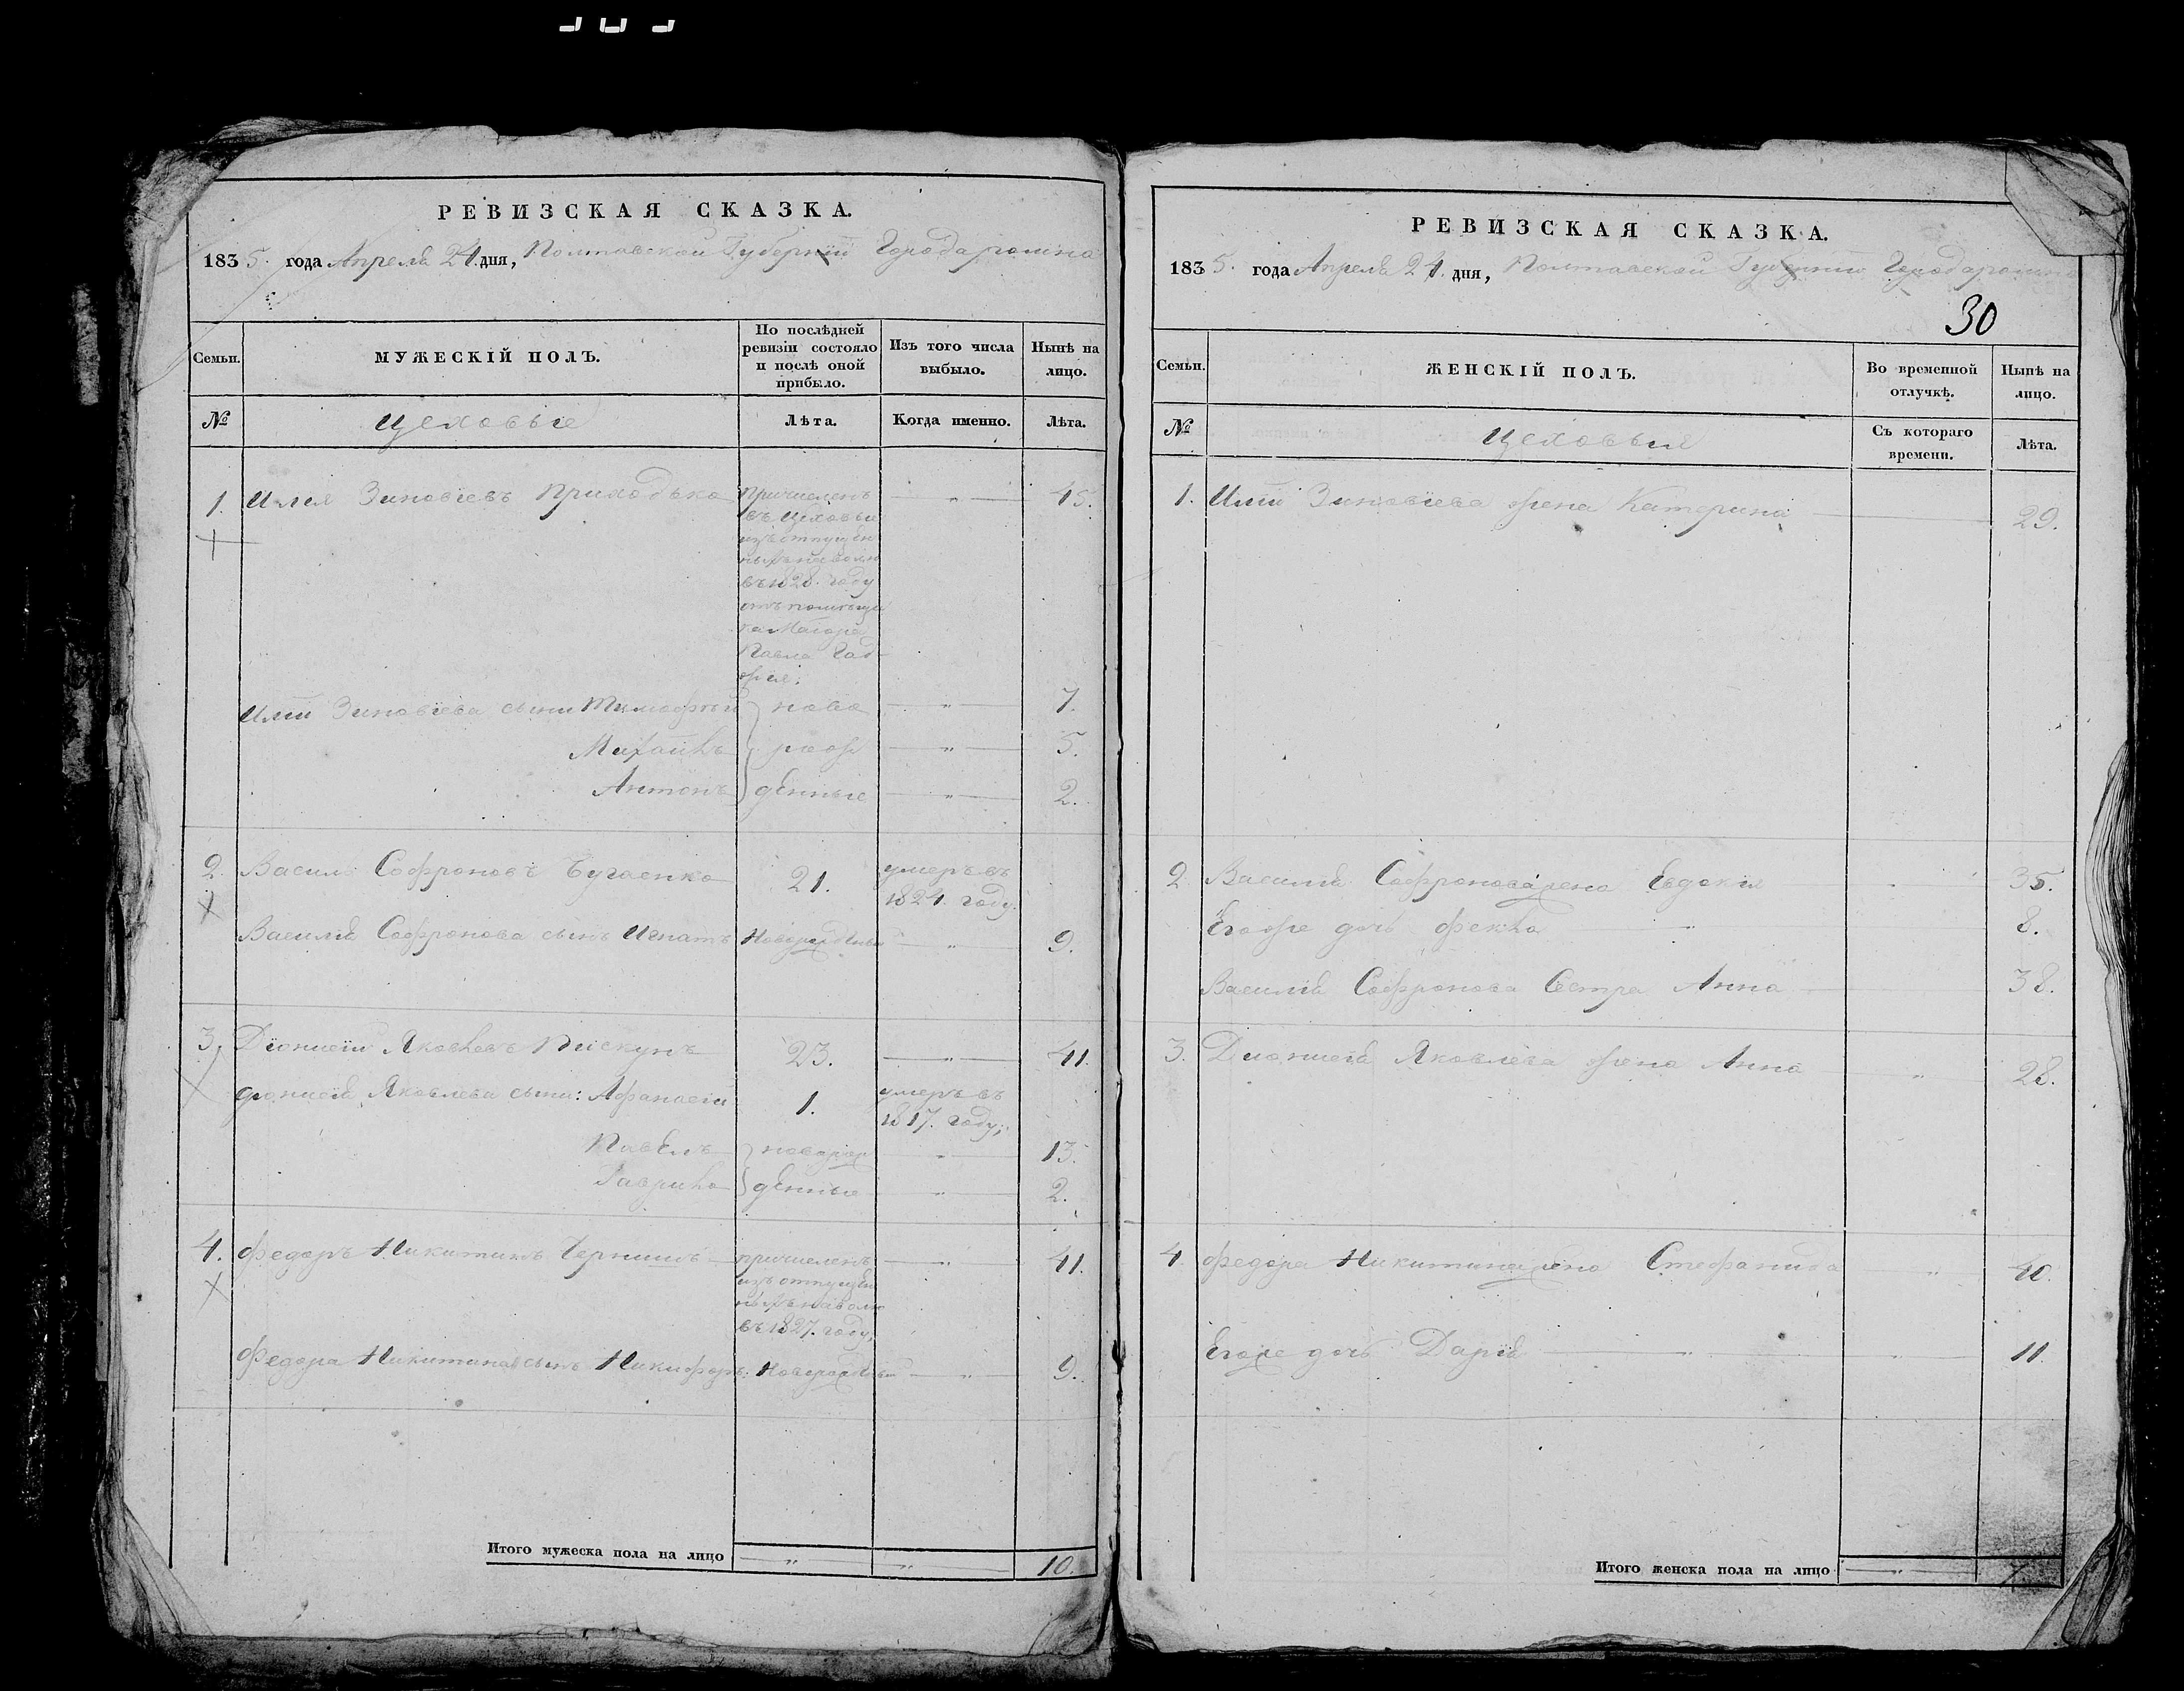 РЕВИЗСКАЯ СКАЗКА.
1835. года Апреля 24. дня, Полтавской Губернии Города Ромна
Семьи.
МУЖЕСКІЙ ПОЛЪ.
По послѣдней ревизіи состояло и послѣ оной прибыло.
Изъ того числа выбыло.
Нынѣ на лицо.
№
Цеховые
Лѣта.
Когда именно.
Лѣта.
1. Илія Зиновіевъ Приходько
причисленъ
въ Цеховыя
изъ отпущен
ныхъ наволю
въ 1828. году
отъ помѣщи
ка Маіора
Павла
45.
Иліи Зиновіева сыни Тимофѣй
ново
7.
Михайлъ
рож
5.
Антонъ
денные
2.
2. Василь Софроновъ Бугаенко
21.
умеръ въ
1824. году.
Василія Софронова сынъ Игнатъ
Новорожденый
9.
3. Діонисій Яковлевъ Пискунъ
23.
41.
Діонисія Яковлева сыни: Афанасій
1.
умеръ въ
1817. году;
Павелъ
новорож
13.
Гаврило
денные
2.
4. Федоръ Никитинъ
причисленъ
изъ отпущен
ныхъ наволю
въ 1827. году;
41.
Федора Никитина сынъ Никифоръ:
Новорожденый
9.
Итого мужеска пола на лицо
10.
РЕВИЗСКАЯ СКАЗКА.
1835. года Апреля 24. дня, Полтавской Губернии Города Ромна
30
Семьи.
ЖЕНСКІЙ ПОЛЪ.
Во временной отлучкѣ.
Нынѣ на лицо.
№
Цеховыя
Съ котораго времени.
Лѣта.
1. Иліи Зиновіева жена Катерина
29.
2. Василія Софронова жена Евдокія
35.
Егоже дочь Фекла
8.
Василія Софронова Сестра Анна
38.
3. Дионисія Яковлева жена Анна
28.
4. Федора Никитина жена Стефанида
40.
Егоже дочь Дарія
11.
Итого женска пола на лицо
7